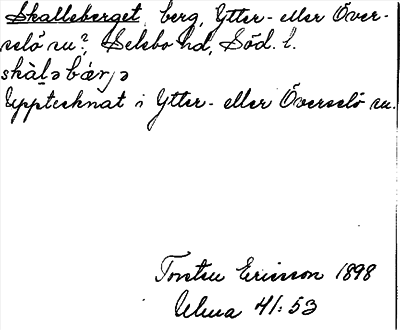 Skalleberget, berg, Ytter- eller Över-
selö sn?, Selebo hd, Söd. l.
skàḷə bǽrjə
Upptecknat i Ytter- eller Överselö sn.
Torsten Ericsson 1898
Ulma 41:53